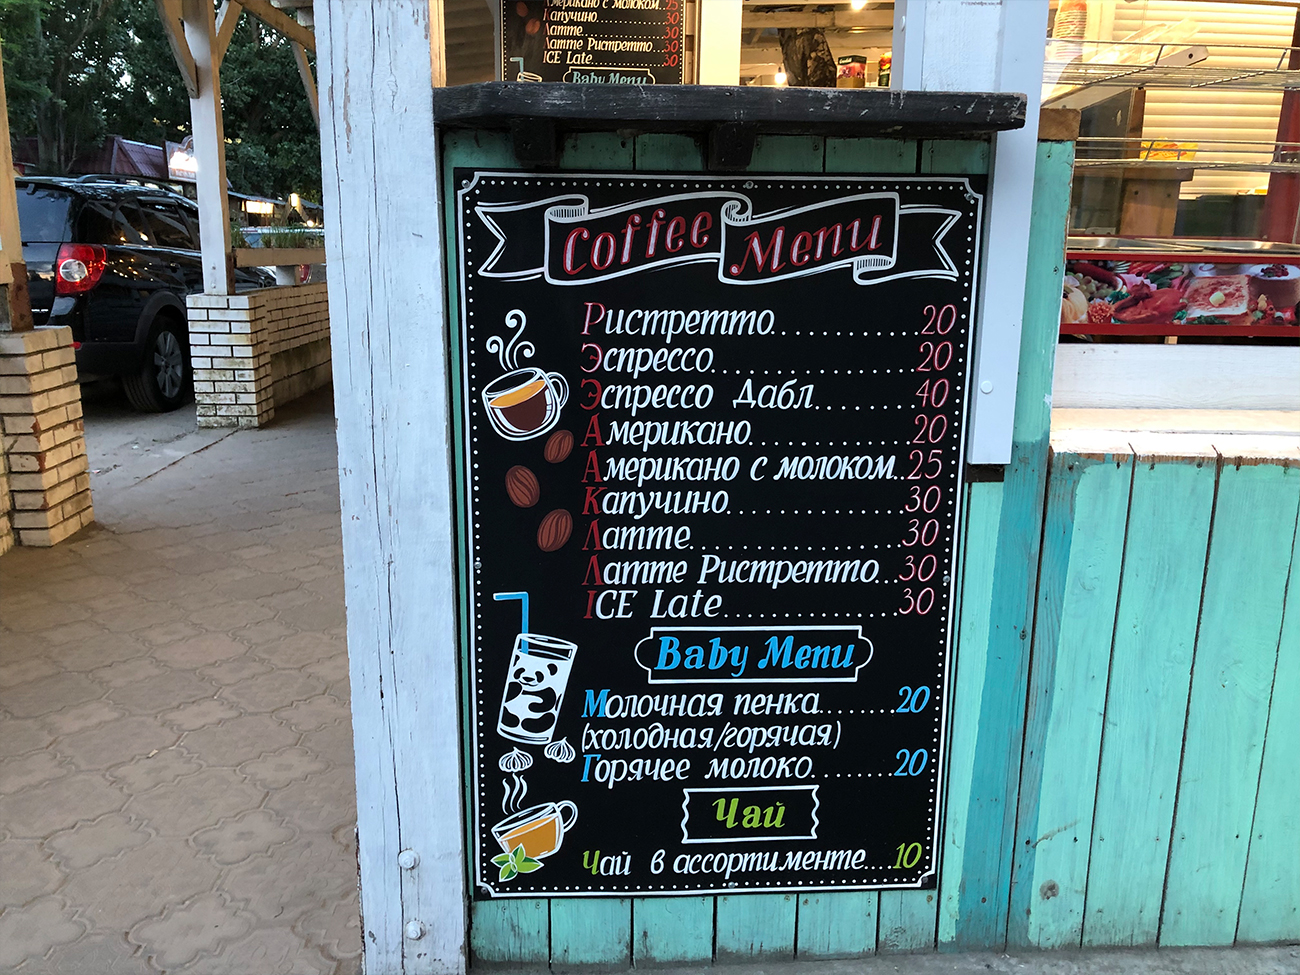 Американо с молоком..25
Капучино...30
Латте...30
Латте Ристретто...30
ICE Late...30
Baby Menu
Coffee Menu
Ристретто............20
Эспрессо............20
Эспрессо Дабл.......40
Американо...........20
Американо с молоком..25
Капучино............30
Латте...............30
Латте Ристретто...30
ICE Late............30
Baby Menu
Молочная пенка........20
(холодная/горячая)
Горячее молоко........20
Чай
Чай в ассортименте....10